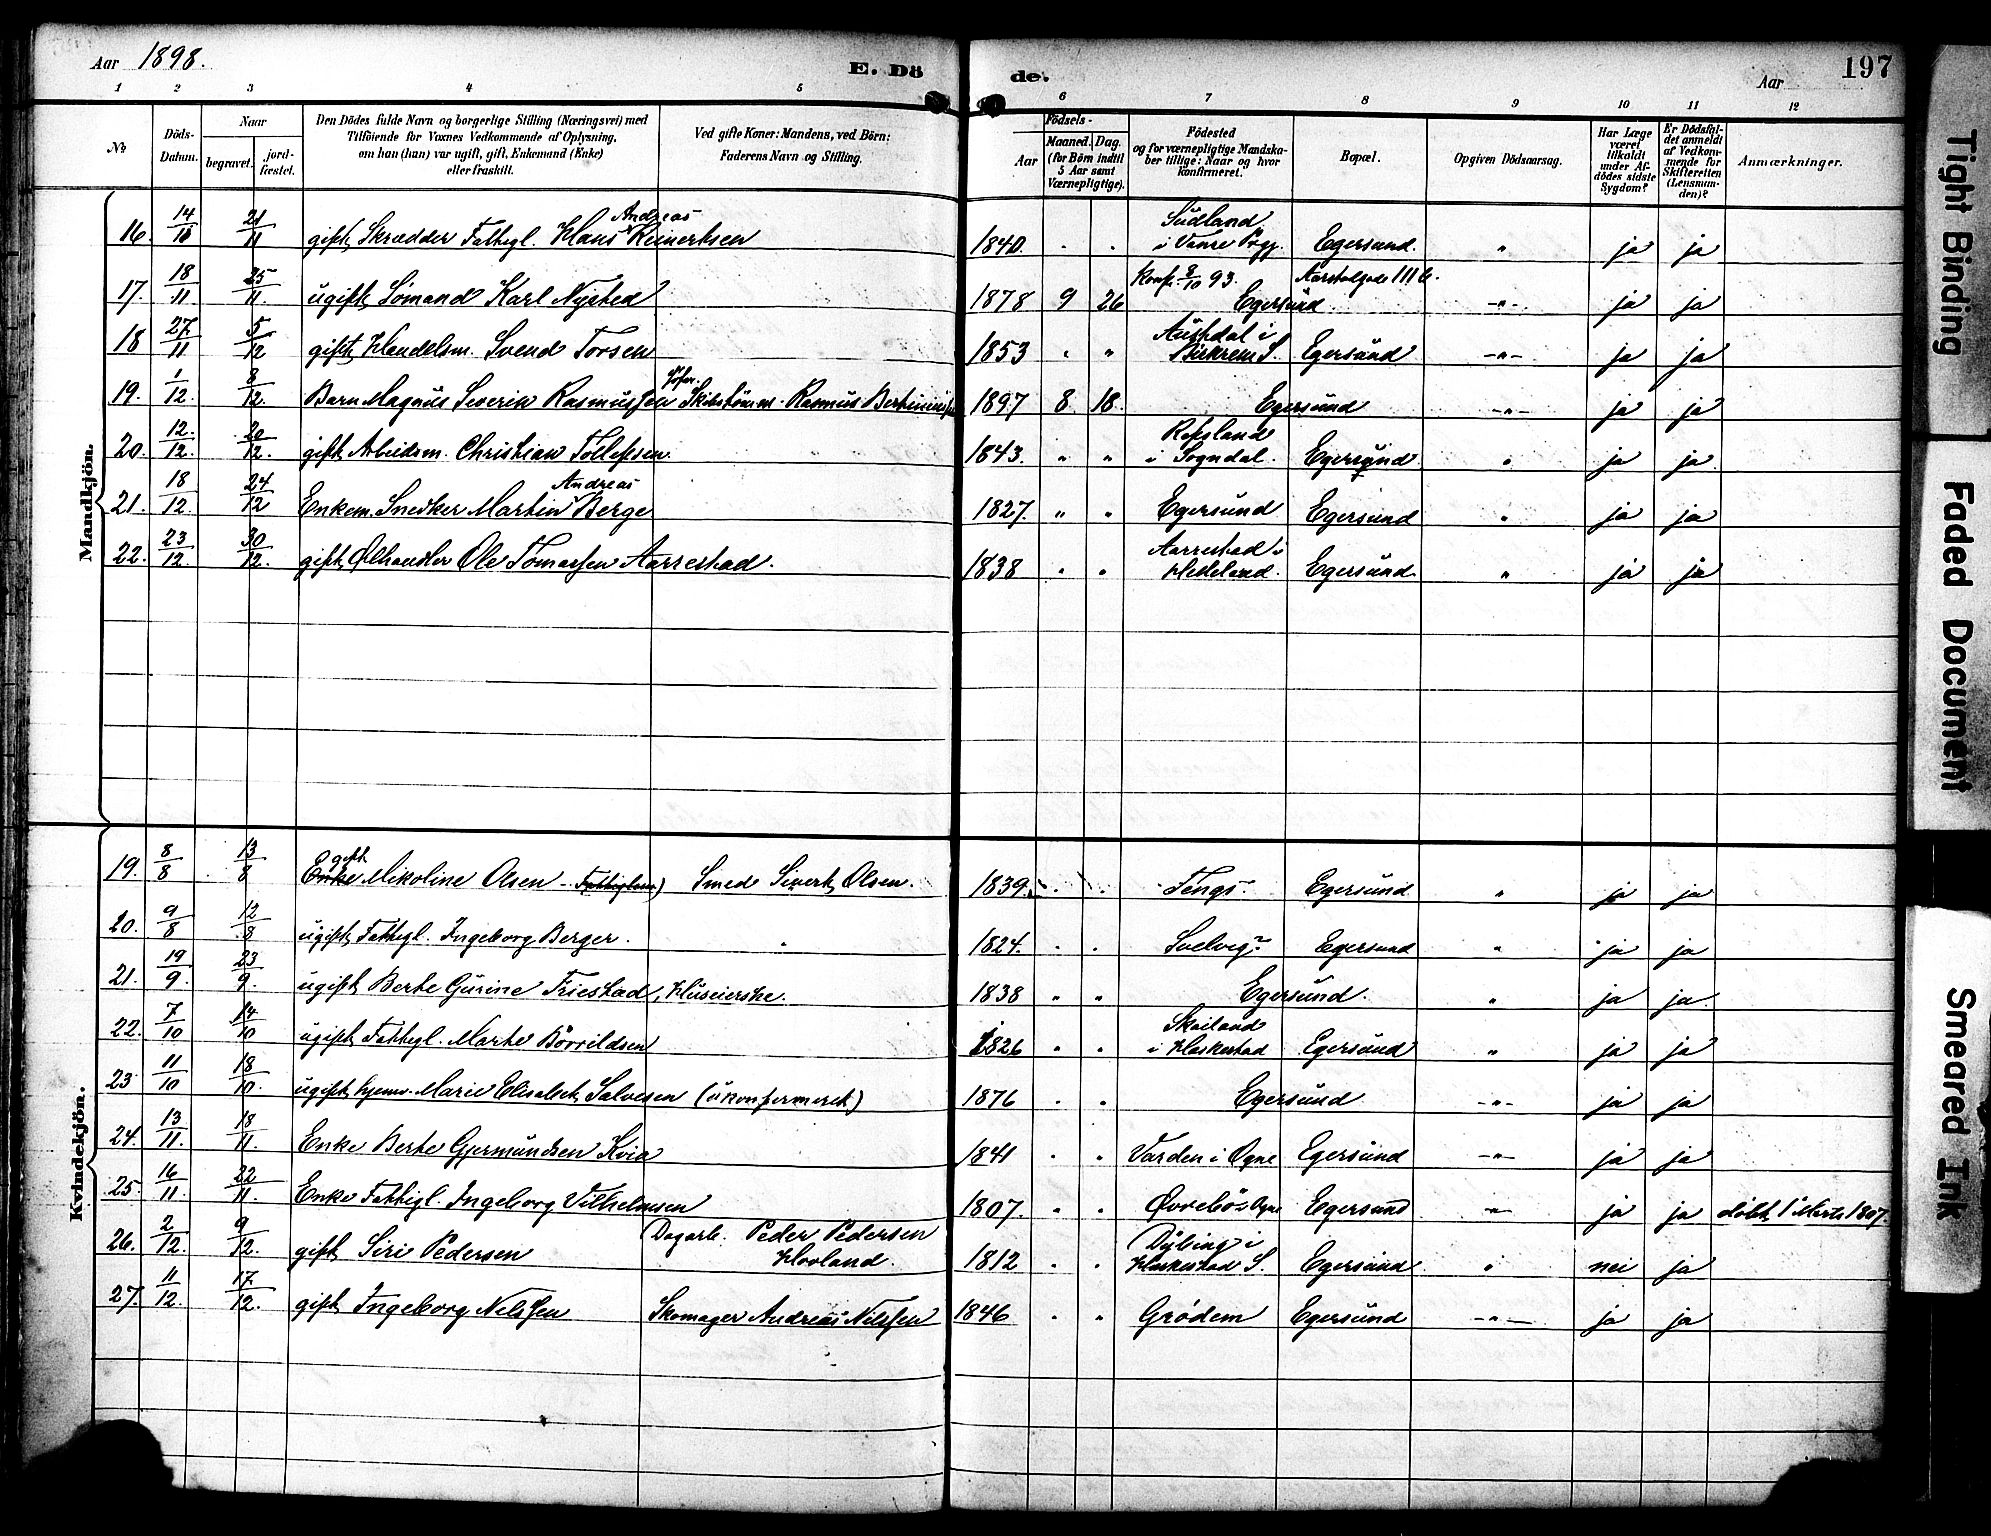 Aar 1898.
E. Dö
de.
Aar
197
1 2 3 4 5 6 7 8 9 10 11 12
No
Döds-
Datum.
Naar
begravet.
jord-
fæstet.
Den Dödes fulde Navn og borgerlige Stilling (Næringsvei) med
Tilföiende for Voxnes Vedkommende af Oplysning.
om han (hun) var ugift, gift, Enkemand (Enke)
eller fraskilt.
Ved gifte Koner: Mandens, ved Börn:
Faderens Navn og Stilling.
Födsels-
Aar
Maaned.
Dag.
(for Börn indtil
5 Aar samt
Værnepligtige).
Födested
og for værnepligtige Mandska-
ber tillige: Naar og hvor
konfirmeret.
Bopæl.
Opgiven Dödsaarsag.
Har Læge
været
tilkaldt
under Af-
dödes sidste
Sygdom?
Er Dödsfal-
det anmeldt
af Vedkom-
mende for
Skifteretten
(Lensman-
den)?
Anmærkninger.
Mandkjön.
16. 14/11 21/11 gift Skrædder Fattigl. Hans Andreas Reinertsen 1840. " " Sudland i Vanse Egersund. " ja ja
17. 18/11 25/11 ugift Sømand Karl Nysted 1878 9 26 Konf. 8/10 93. Egersund Aarstadgade 111 b. -"- ja ja
18 27/11 5/12 gift Handelsm. Svend Torsen 1853 " " i S. Egersund -"- ja ja
19. 1/12 8/12. Barn Magnus Severin Rasmussen Skibstømm. Rasmus 1897 8 18. Egersund -"- ja ja
20. 12/12. 20/12. gift Arbeidsm. Christian Tollefsen 1843. " " Refsland i Sogndal. Egersund " ja ja
21. 18/12. 24/12 Enkem. Snedker Martin Andreas Berge 1827. " " Egersund Egersund " ja ja
22. 23/12. 30/12. gift Ølhandler Ole Tomassen Aarrestad. 1838 " " Aarrestad i Helleland. Egersund " ja ja
Kvindekjön.
19. 8/8 13/8 Enke gift Nikoline Olsen Smed Sivert Olsen. 1839. " " Tengs. Egersund " ja ja
20. 9/8 12/8 ugift Fattigl. Ingeborg Berger. " 1824. " " Svelvig. Egersund " ja ja
21. 19/9 23/9. ugift Berte Gurine Friestad, Huseierske. 1838 " " Egersund. " ja ja.
22. 7/10 14/10 ugift Fattigl. Marte Börrildsen 1826 " " Skailand i Heskestad Egersund " ja ja
23 11/10 18/10. ugift hjemv. Marie Elisabet Salvesen (ukonfermeret) 1876 " " Egersund -"- ja ja
24. 13/11. 18/11. Enke Berte Gjermundsen Kvia 1841 " " Varden i Ogne Egersund -"- ja ja
25 16/11. 22/11. Enke Fattigl. Ingeborg Vilhelmsen 1807. " " Øvrebö Ogne Egersund -"- ja ja döbt 1 Marts 1807.
26. 2/12. 9/12. gift Siri Pedersen Dagarb. Peder Pedersen Hovland. 1812 " " Dybing i Heskestad S. Egersund " nei ja
27. 11/12. 17/12. gift Ingeborg Nelssen Skomager Andreas Nilssen 1846 " " Grödem Egersund -"- ja ja
Tight Binding
Faded Document
Smeared Ink